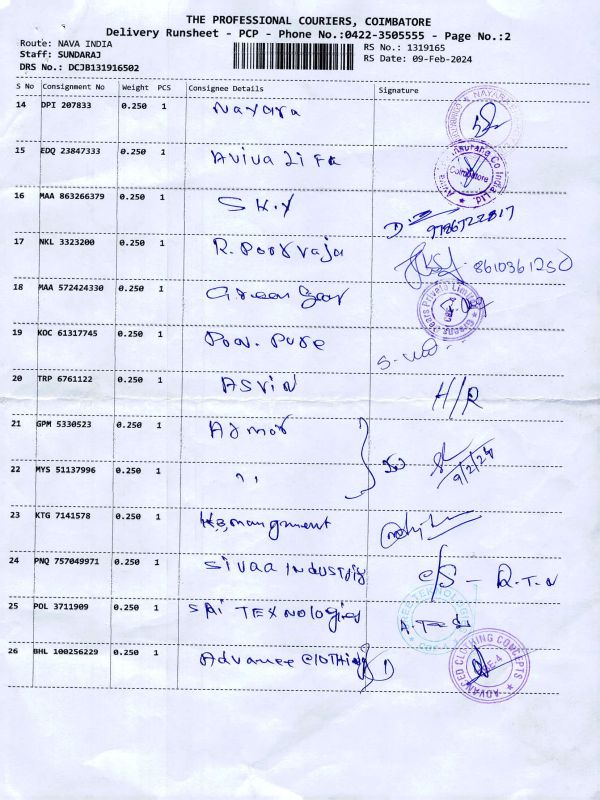 THE PROFESSIONAL COURIERS, COIMBATORE
Delivery Runsheet - PCP - Phone No.:0422-3505555 - Page No.:2
Route: NAVA INDIA RS No.: 1319165
Staff: SUNDARAJ RS Date: 09-Feb-2024
DRS No.: DCJB131916502
S No Consignment No Weight PCS Consignee Details Signature
14 DPI 207833 0.250 1 Nayara
15 EDQ 23847333 0.250 1 Aviva Life Coimbatore
16 MAA 863266379 0.250 1 S K.Y 9786722817
17 NKL 3323200 0.250 1 R. Poorvaja 8610361250
18 MAA 572424330 0.250 1 Green
19 KOC 61317745 0.250 1 Poov. Pure
20 TRP 6761122 0.250 1 Asvin H/R
21 GPM 5330523 0.250 1 Admor
22 MYS 51137996 0.250 1 " 9/2/24
23 KTG 7141578 0.250 1 mangment
24 PNQ 757049971 0.250 1 Sivaa Industris C/S - R.T.N
25 POL 3711909 0.250 1 SAI TEXnologies
26 BHL 100256229 0.250 1 Advance CLOTHing ADVANCED CLOTHING CONCEPTS